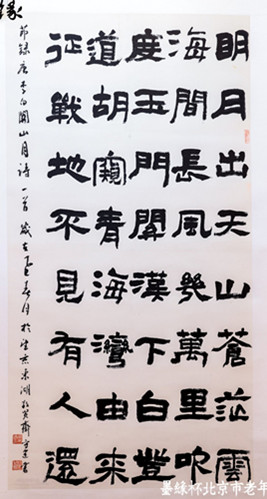 缘
明月出天山蒼茫雲
海間長風幾萬里吹
度玉門關漢下白登
道胡窺青海灣由來
征戰地不見有人還
節錄唐李白關山月詩一首歲在乙巳春月於望京東湖
墨缘杯北京市老年